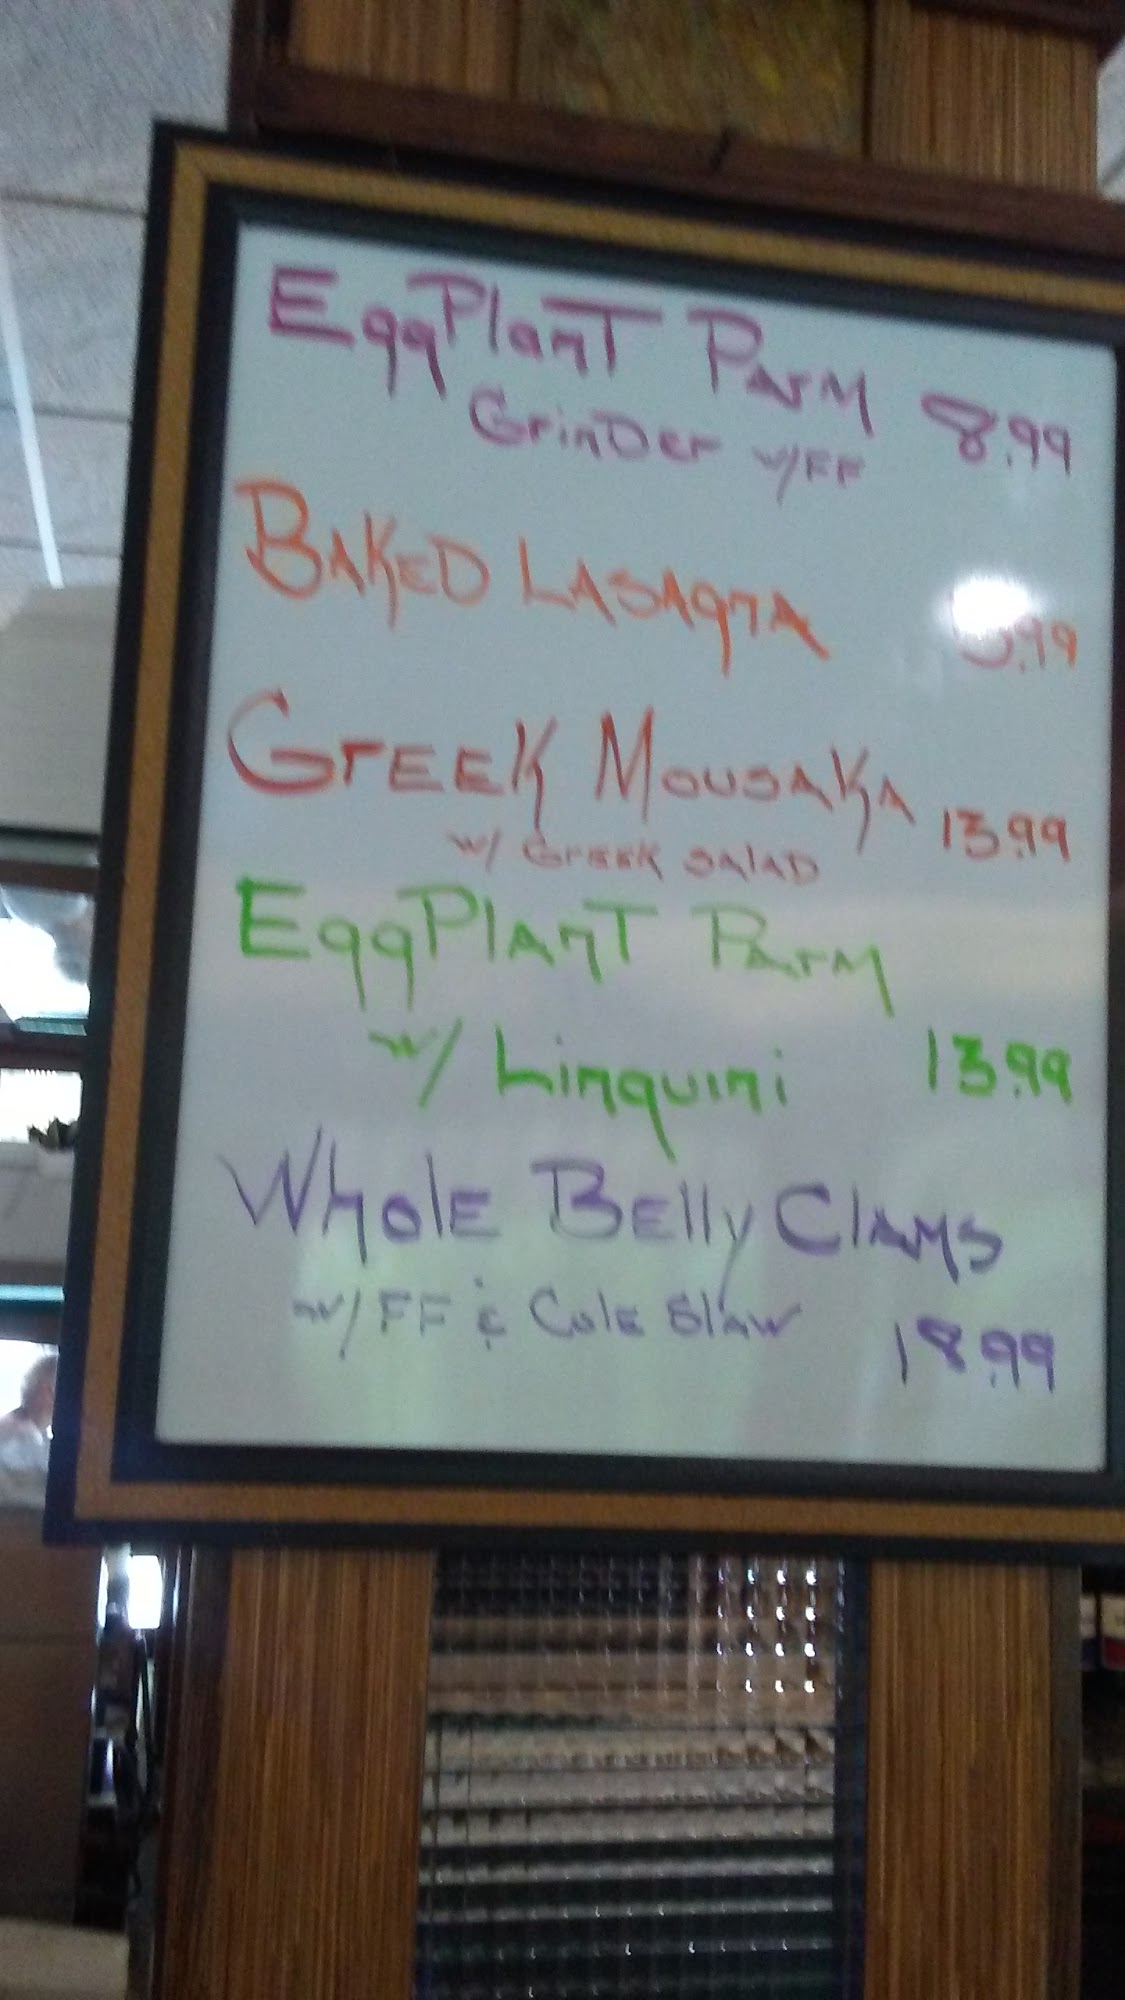 EggPlanT Parm
Grinder w/FF 8.99
BAKED LASAgnA
GreeK MousaKA 13.99
w/ Greek Salad
EggPlanT Parm
w/ Linquini 13.99
Whole Belly Clams
w/ FF & Cole Slaw 18.99